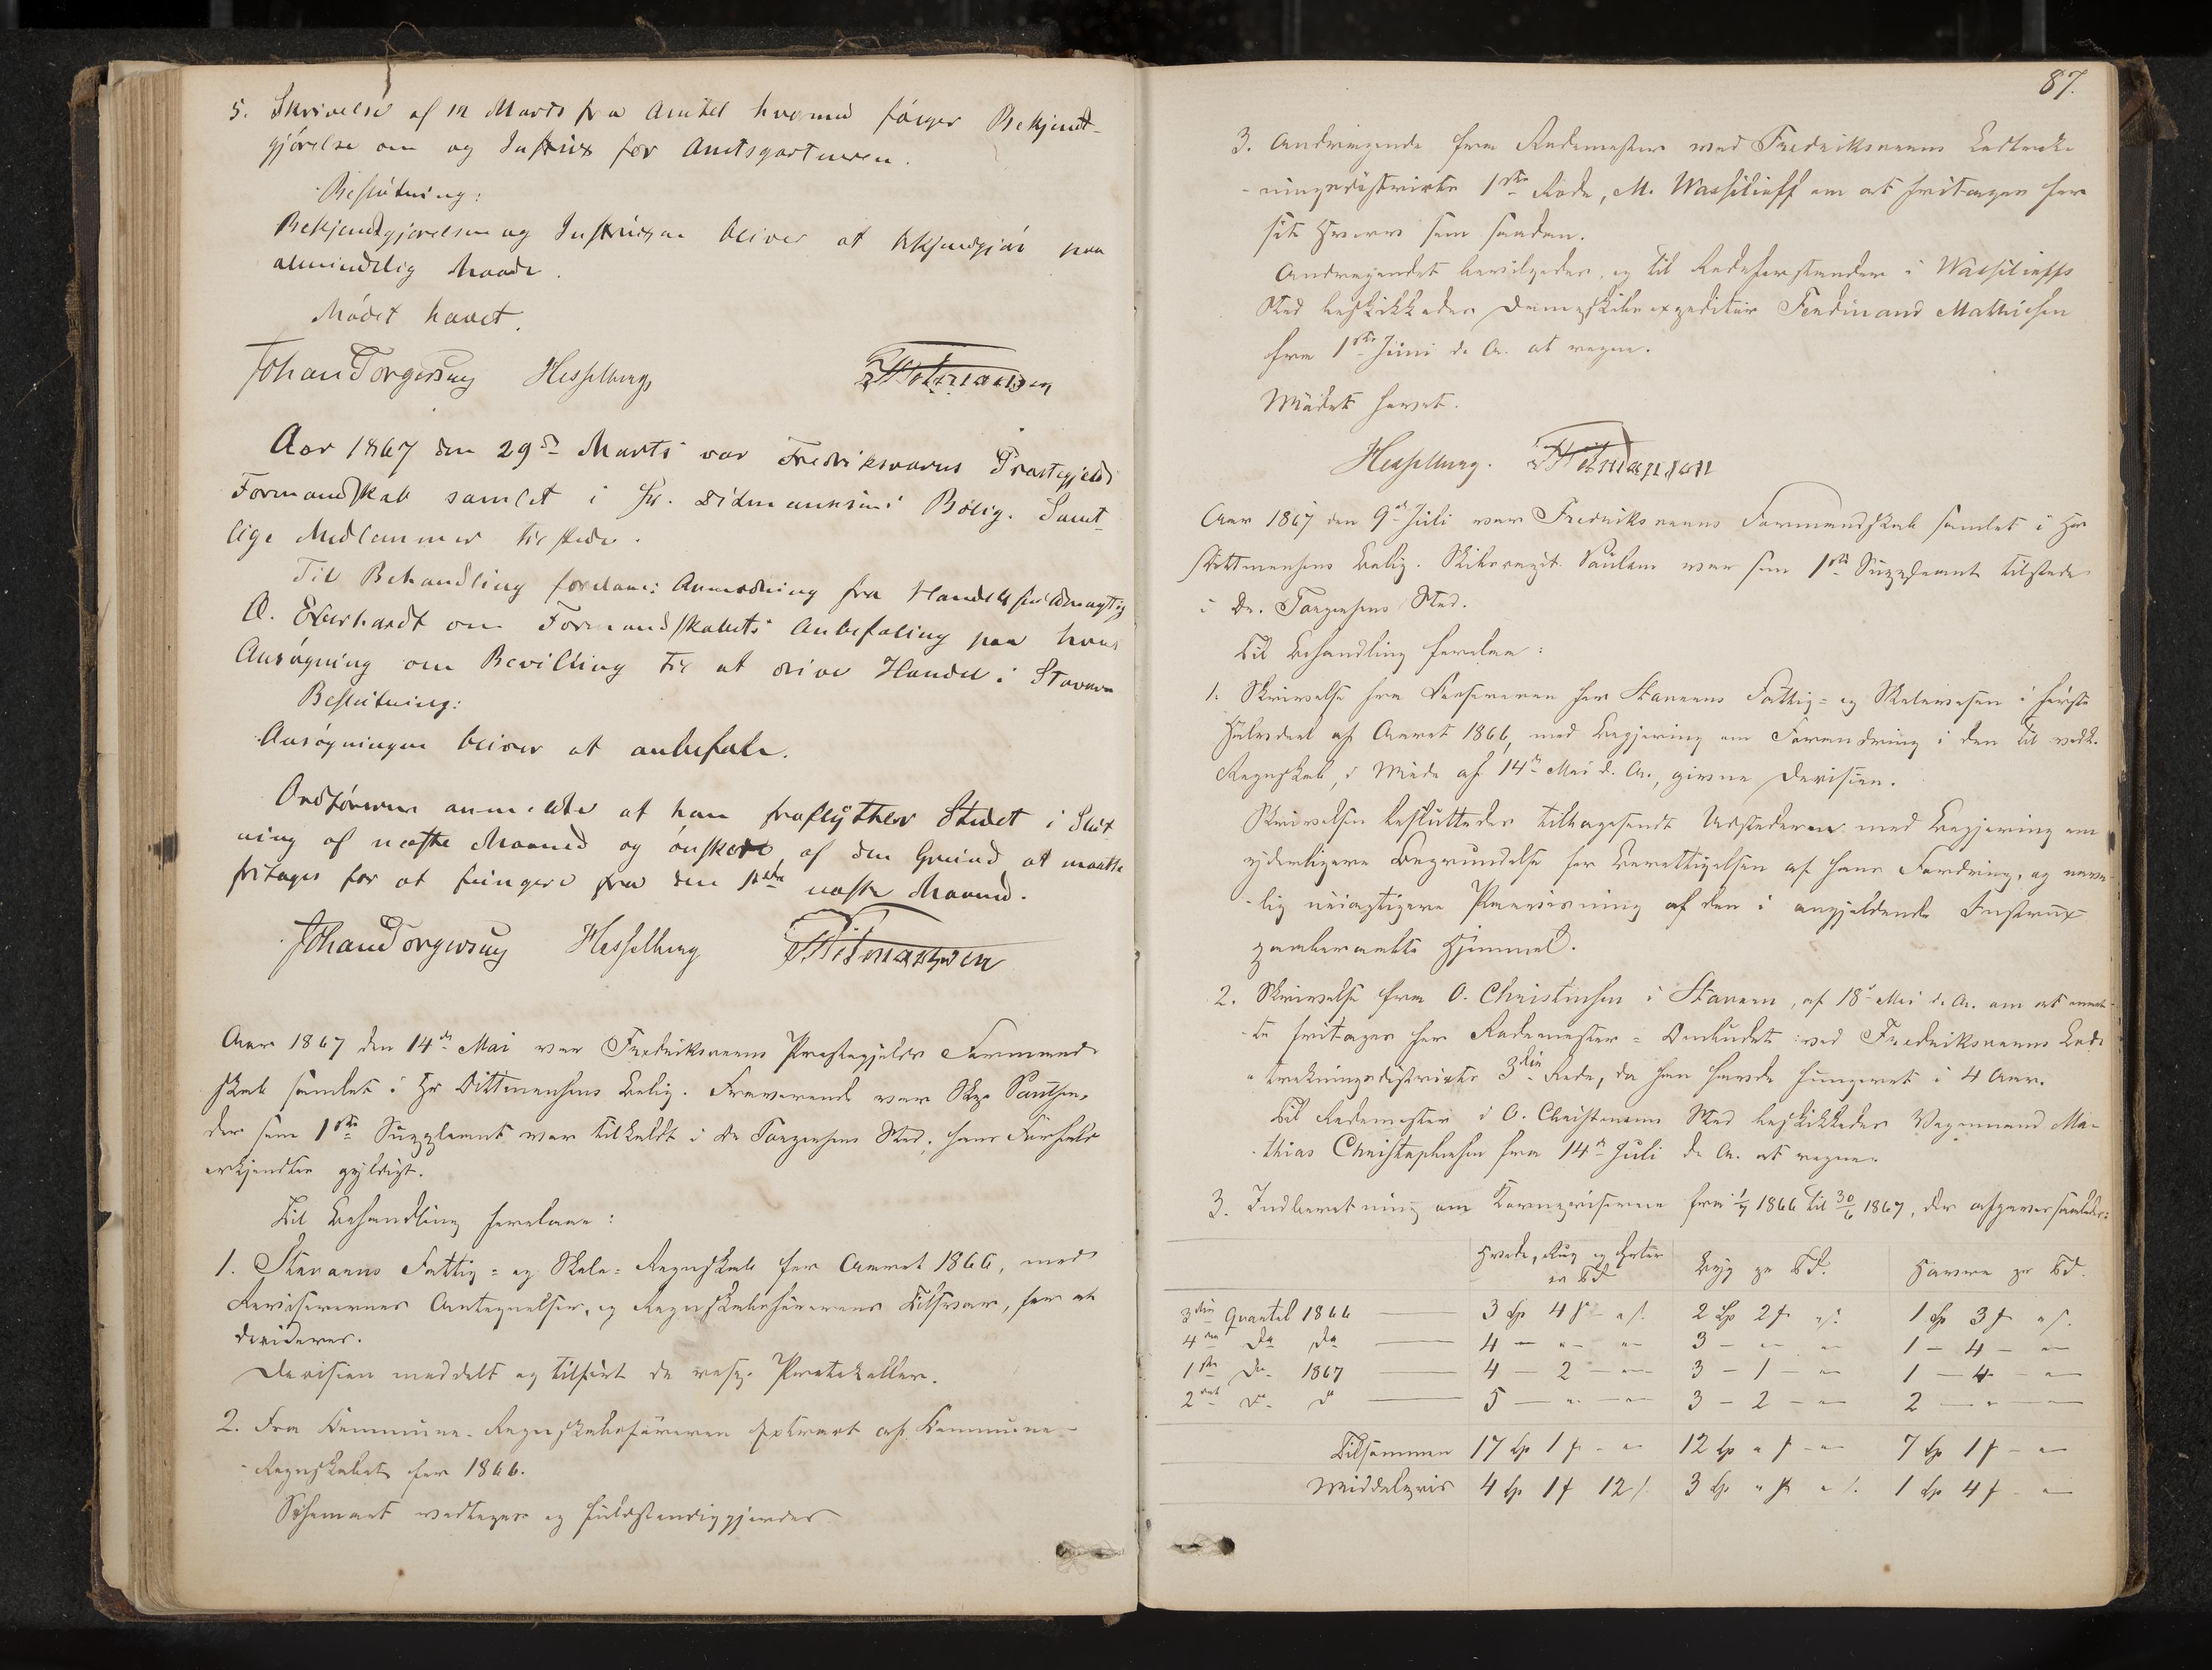 5. Skrivelse af 12 Marts fra Amtet hvormed følger Bekjendt-
gjørelse om og Instrux for Amtsgartneren.
Beslutning:
Bekjendtgjørelsen og Instruxen bliver at bekjendtgjøre paa
almindelig Maade.
Mødet hævet.
Johan Torgersen Hesselberg Ditmansen
Aar 1867 den 29de Marts var Fredriksværns Præstegjelds
Formandskab samlet i Hr. Ditmansens Bolig. Samt-
lige Medlemmer tilstede.
Til Behandling forelaae: Anmodning fra Handelsfuldmægtig
O. Eberhardt om Formandskabets Anbefaling paa hans
Ansøgning om Bevilling til at drive Handel i Stavern
Beslutning:
Ansøgningen bliver at anbefale.
Ordføreren anmeldte at han fraflytter Stedet i Slut-
ning af næste Maaned og ønskede af den Grund at maatte
fritages for at fungere fra den næste Maaned.
Johan Torgersen Hesselberg Ditmansen
Aar 1867 den 14de Mai var Fredriksværns Præstegjelds Formand-
skab samlet i Hr Dittmansens Bolig. Fraværende var
der som 1ste Suppleant var tilkaldt i Dr Torgersens Sted; hans Forfald
erkjendtes gyldigt.
Til Behandling forelaae:
1. Staværns Fattig- og Skole-Regnskab for Aaret 1866, med
Revisorernes Antegnelser, og Regnskabsførerens Tilsvar, for at
decideres.
Decision meddelt og tilført de resp. Protokoller.
2. Fra Kommune-Regnskabsføreren Extract af Kommune-
Regnskabet for 1866.
Schemaet vedtoges og fuldstændiggjordes
87.
3. Andragende fra Rodemester ved Fredriksværns Lodtræk-
ningsdistrikts 1ste Rode, M. Wassilieff om at fritages for
sit Hverv som saadan.
Andragendet bevilgedes, og til Rodeforstander i Wassilieffs
Sted beskikkedes Dampskibsexpeditør Ferdinand Mathiesen
fra 1ste Juni d. A. at regne.
Mødet hævet.
Hesselberg. Ditmansen
Aar 1867 den 9de Juli var Fredriksværns Formandskab samlet i Hr
Dittmansens Bolig. Paulsen var som 1ste Suppleant tilstede
i Dr. Torgersens Sted.
Til Behandling forelaae:
1. Skrivelse fra Kasserer for Staværns Fattig- og Skolevæsen i første
Halvdeel af Aaret 1866, med Begjæring om Forandring i den til vedk.
Regnskab, i Møde af 14de Mai d. A., givne Decision.
Skrivelsen besluttedes tilbagesendt Udstederen med Begjæring om
yderligere Begrundelse for Berettigelsen af hans Fordring, og navn-
lig nøiagtigere Paavisning af den i angjeldende Instrux
paaberaabte Hjemmel.
2. Skrivelse fra O. Christensen i Stavern, af 18de Mai d. A. om at maat-
te fritages for Rodemester-Ombudet ved Fredriksværns Lod-
trækningsdistrikts 3die Rode, da han havde fungeret i 4 Aar.
Til Rodemester i O. Christensens Sted beskikkedes Vognmand Ma-
thias Christophersen fra 14de Juli d. A. at regne.
3. Indberetning om Kornpriserne fra 1/7 1866 til 30/6 1867, der afgaves saaledes:
Hvede, Rug og Erter pr Td. Byg pr Td. Havre pr Td.
3die Quartal 1866 3 Sp 4 ß " ß. 2 Sp 2 ß " ß. 1 Sp 3 ß " ß.
4de Do Do 4 — " — " 3 — " — " 1 — 4 — "
1ste Do 1867 4 — 2 — " 3 — 1 — " 1 — 4 — "
2det Do Do 5 — " — " 3 — 2 — " 2 — " — "
Tilsammen 17 Sp 1 ß — " 12 Sp " ß — " 7 Sp 1 ß — "
Middelpris 4 Sp 1 ß 12 ß. 3 Sp " ß " ß. 1 Sp 4 ß — "